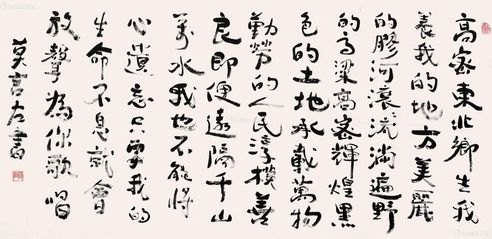 高密東北鄉生我
養我的地方美麗
的膠河滾流淌遍野
的高粱高密輝煌黑
色的土地承載萬物
勤勞的人民淳樸善
良即便遠隔千山
萬水我也不能將
遺忘只要我的
生命不息就會
放聲為你歌唱
莫言左書